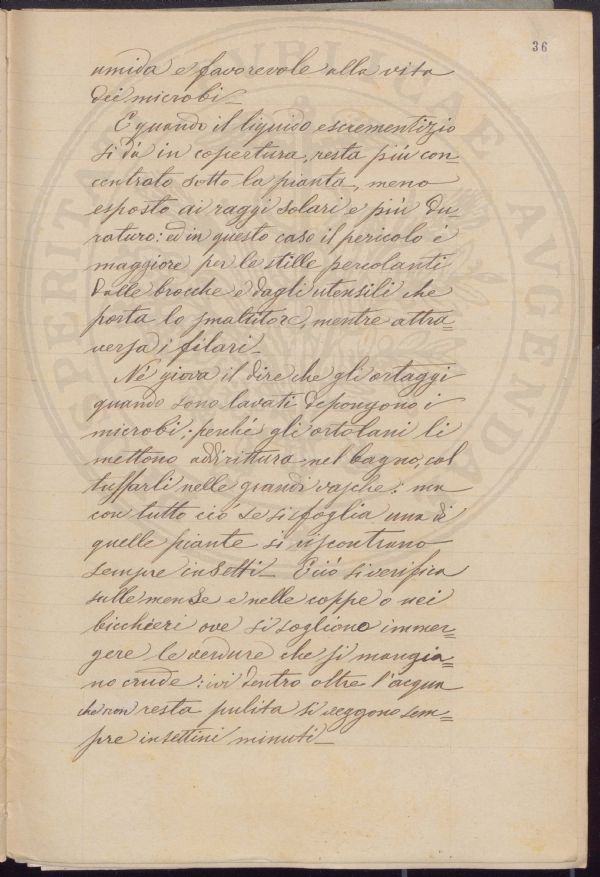 36
umida e favorevole alla vita
dei microbi_
E quando il liquido escrementizio
si dà in copertura, resta più con=
centrato sotto la pianta, meno
esposto ai raggi solari e più du=
raturo: ed in questo caso il pericolo è
maggiore per le stille percolanti
dalle brocche e dagli utensili che
porta lo smaltitore, mentre attra=
versa i filari_
Nè giova il dire che gli ortaggi
quando sono lavati depongono i
microbi; perchè gli ortolani li
mettono addirittura nel bagno, col
tuffarli nelle grandi vasche: ma
con tutto ciò se si sfoglia una di
quelle piante si riscontrano
sempre insetti_ E ciò si verifica
sulle mense e nelle coppe o nei
bicchieri ove si sogliono immer=
gere le verdure che si mangia=
no crude: ivi dentro oltre l'acqua
che non resta pulita si veggono sem=
pre insettini minuti_